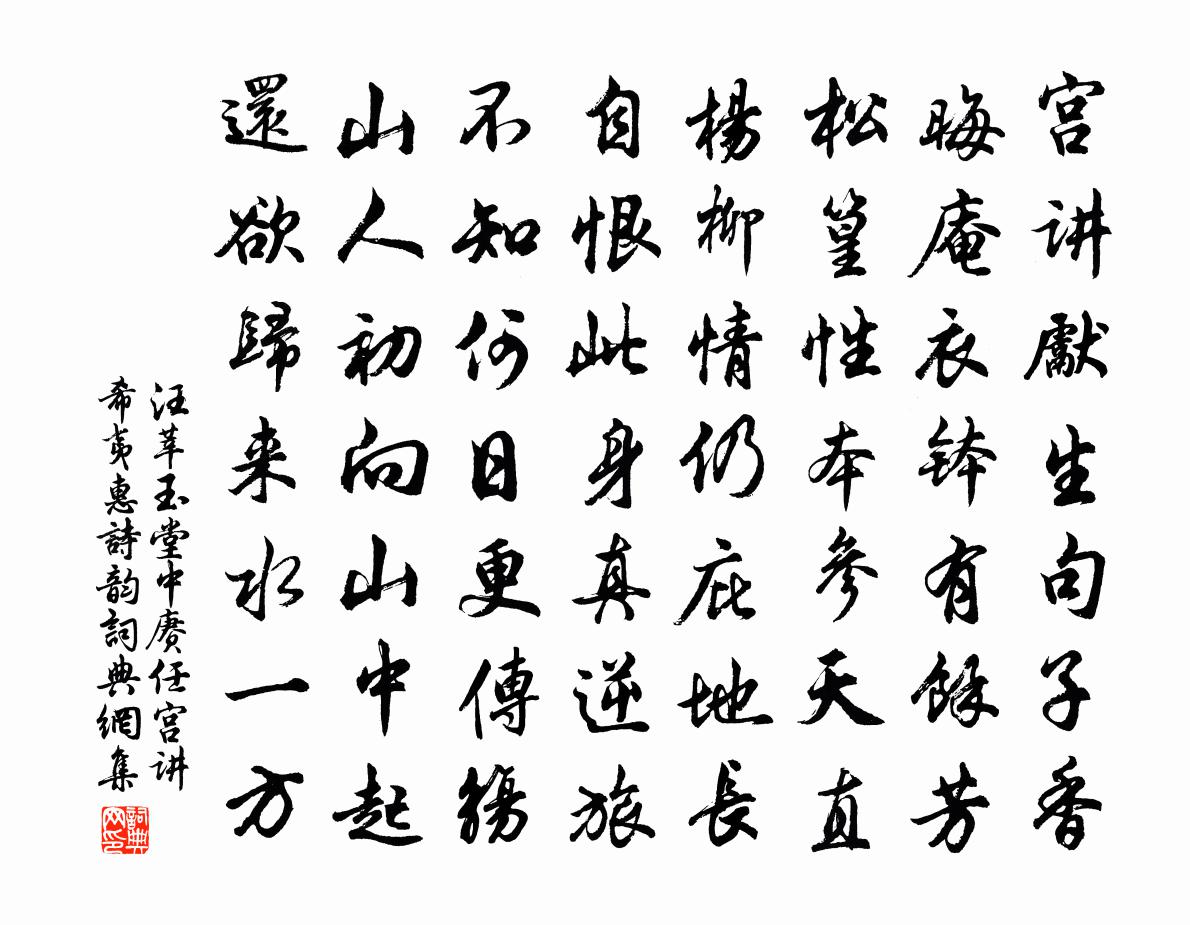 宫讲獻生句子香
晦庵衣钵有餘芳
松篁性本參天直
楊柳情仍庇地長
自恨此身真逆旅
不知何日更傳觴
山人初向山中起
還欲歸来水一方
汪莘玉堂中赓任宫讲
希夷惠詩韵詞典網集
詞典